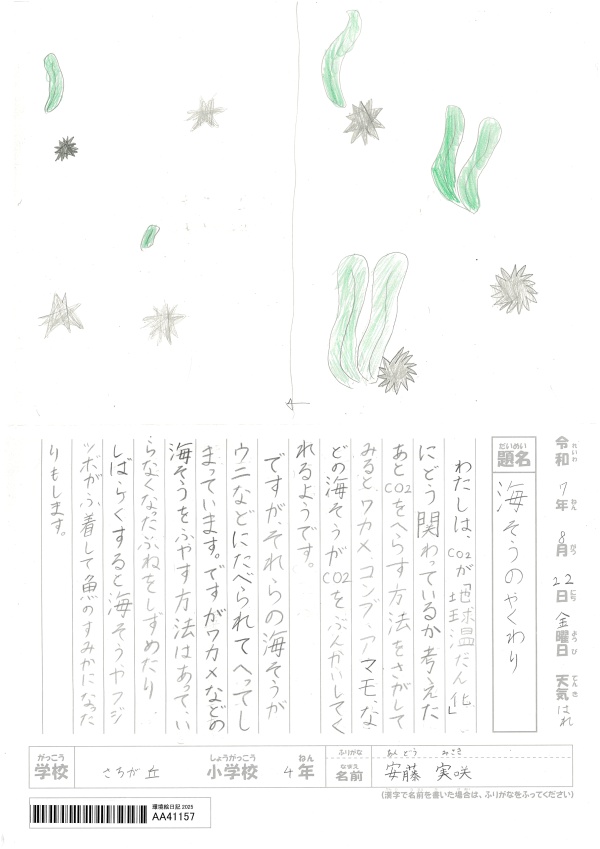 令和7年8月22日金曜日 天気はれ
れいわ ねん がつ にち ようび てんき
だいめい
題名 海そうのやくわり
わたしは、CO2が「地球温だん化」
にどう関わっているか考えた
あとCO2をへらす方法をさがして
みるとワカメ、コンブ、アマモ、な
どの海そうがCO2をぶんかいしてく
れるようです。
ですが、それらの海そうが
ウニなどにたべられてへってし
まっています。ですがワカメなどの
海そうをふやす方法はあって、い
らなくなったふねをしずめたり
しばらくすると海そうやフジ
ツボがふ着して魚のすみかになった
りもします。
がっこう しょうがっこう ねん
学校 さちが丘 小学校 4年
ふりがな あんどう みさき
なまえ
名前 安藤 実咲
(漢字で名前を書いた場合は、ふりがなをふってください)
環境絵日記 2025
AA41157